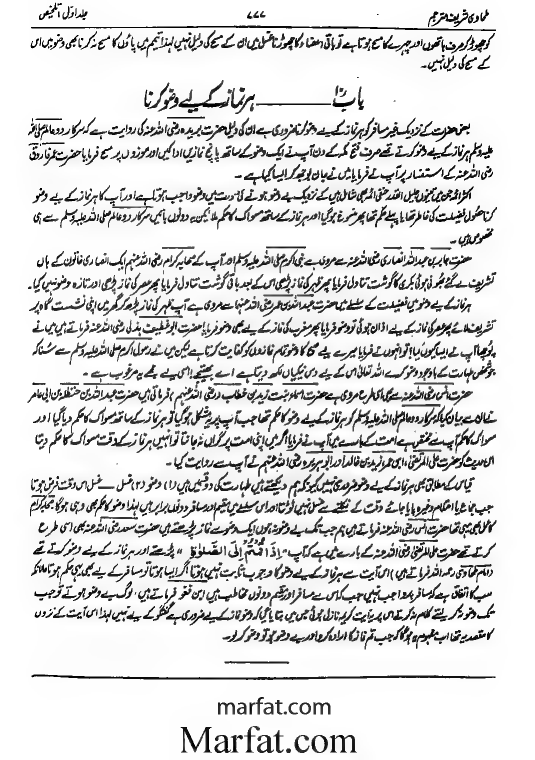 طحاوی شریف مترجم ۷۷۷ جلد اول التلخیص
کو چھوڑ کر صرف ہاتھوں اور چہرے کا مسح ہوتا ہے تو باقی اعضاء کا چھوڑنا غسل میں ان کے مسح کی دلیل نہیں لہٰذا تیمم میں پاؤں کا مسح نہ کرنا بھی وضو میں اس
کے مسح کی دلیل نہیں۔
باب ہر نماز کے لیے وضو کرنا
بعض حضرات کے نزدیک غیر مسافر کو ہر نماز کے لیے وضو کرنا ضروری ہے ان کی دلیل حضرت بریدہ رضی اللہ عنہ کی روایت ہے کہ سرکار دو عالم صلی اللہ
علیہ وسلم ہر نماز کے لیے وضو کرتے تھے صرف فتح مکہ کے دن آپ نے ایک وضو کے ساتھ پانچ نمازیں ادا کیں اور موزوں پر مسح فرمایا حضرت عمر فاروق
رضی اللہ عنہ کے استفسار پر آپ نے فرمایا میں نے جان بوجھ کر ایسا کیا ہے۔
اکثر ائمہ جن میں جلیل القدر حنفی ائمہ بھی شامل ہیں کے نزدیک بے وضو ہونے کی صورت میں وضو واجب ہوتا ہے اور آپ کا ہر نماز کے لیے وضو
کرنا حصول فضیلت کی خاطر تھا یا پہلے حکم تھا پھر منسوخ ہو گیا اور ہر نماز کے ساتھ مسواک کا حکم ملا لیکن یہ دونوں باتیں سرکار دو عالم صلی اللہ علیہ وسلم سے ہی
مخصوص ہیں۔
حضرت جابر بن عبداللہ انصاری رضی اللہ عنہ سے مروی ہے نبی اکرم صلی اللہ علیہ وسلم اور آپ کے صحابہ کرام رضی اللہ عنہم ایک انصاری خاتون کے ہاں
تشریف لے گئے بھنی ہوئی بکری کا گوشت تناول فرمایا پھر ظہر کی نماز پڑھی اس کے بعد باقی گوشت تناول فرمایا پھر عصر کی نماز پڑھی اور تازہ وضو نہیں کیا۔
ہر نماز کے لیے وضو میں فضیلت کے سلسلے میں حضرت عبداللہ بن عمر رضی اللہ عنہما سے مروی ہے آپ ظہر کی نماز پڑھ کر گھر میں اپنی نشست گاہ پر
تشریف لائے پھر عصر کی نماز کے لیے اذان ہوئی تو وضو فرمایا پھر مغرب کی نماز کے لیے بھی وضو فرمایا حضرت ابو غطیف ہذلی رضی اللہ عنہ فرماتے ہیں میں نے
پوچھا آپ نے ایسا کیوں کیا؟ تو انہوں نے فرمایا میرے لیے صبح کا وضو تمام نمازوں کو کفایت کرتا ہے لیکن میں نے رسول اکرم صلی اللہ علیہ وسلم سے سنا کہ
جو شخص طہارت کے باوجود وضو کرے اللہ تعالیٰ اس کے لیے دس نیکیاں لکھ دیتا ہے اے بھتیجے! اسی لیے مجھے یہ مرغوب ہے۔
حضرت انس رضی اللہ عنہ سے بھی اسی طرح مروی ہے حضرت اسماء بنت زید بن خطاب رضی اللہ عنہم فرماتی ہیں حضرت عبداللہ بن حنظلہ بن ابی عامر
نے ان سے بیان کیا کہ سرکار دو عالم صلی اللہ علیہ وسلم کو ہر نماز کے لیے وضو کا حکم تھا جب آپ پر یہ مشکل ہو گیا تو ہر نماز کے ساتھ مسواک کا حکم دیا گیا اور
مسواک کا حکم آپ سے مختص ہے امت کے بارے میں آپ نے فرمایا اگر میں اپنی امت پر گراں نہ جانتا تو انہیں ہر نماز کے وقت مسواک کا حکم دیتا
اس حدیث کو حضرت علی المرتضیٰ، ابن عمر، زید بن خالد اور ابوہریرہ رضی اللہ عنہم نے آپ سے روایت کیا۔
قیاس کے مطابق بھی ہر نماز کے لیے وضو ضروری نہیں کیونکہ ہم دیکھتے ہیں طہارت کی دو قسمیں ہیں (۱) وضو (۲) غسل۔ غسل اس وقت فرض ہوتا ہے
جب جماع یا احتلام وغیرہ پایا جائے وقت کے نکلنے سے غسل نہیں ٹوٹتا اور اس سلسلے میں مقیم اور مسافر دونوں برابر ہیں لہٰذا وضو کا حکم بھی وہی ہوگا صحابہ کرام
کا عمل بھی یہی تھا حضرت انس رضی اللہ عنہ فرماتے ہیں ہم جب تک بے وضو نہ ہوں ایک وضو سے نمازیں پڑھتے ہیں حضرت سعد رضی اللہ عنہ بھی اسی طرح
کرتے تھے حضرت علی المرتضیٰ رضی اللہ عنہ کے بارے میں ہے کہ آپ "اِذَا قُمْتُمْ اِلَی الصَّلٰوةِ" پڑھتے اور ہر نماز کے لیے وضو کرتے تھے
(امام طحاوی رحمہ اللہ فرماتے ہیں) اس آیت سے ہر نماز کے لیے وضو کا وجوب ثابت نہیں ہوتا اگر ایسا ہوتا تو مسافر کے لیے بھی یہی حکم ہوتا حالانکہ
سب کا اتفاق ہے کہ مسافر پر وضو واجب نہیں جب کہ اس سے مسافر اور مقیم دونوں مخاطب ہیں ابن فغواء فرماتے ہیں، لوگ بے وضو ہوتے تو جب
تک وضو نہ کر لیتے کلام نہ کرتے اس پر یہ آیت کریمہ نازل ہوئی جس میں بتایا گیا کہ وضو نماز کے لیے ضروری ہے گفتگو کے لیے نہیں لہٰذا اس آیت کے نزول
کا مقصد یہ تھا اب مفہوم یہ ہوگا کہ جب تم نماز کا ارادہ کرو اور بے وضو ہو تو وضو کر لو۔
marfat.com
Marfat.com